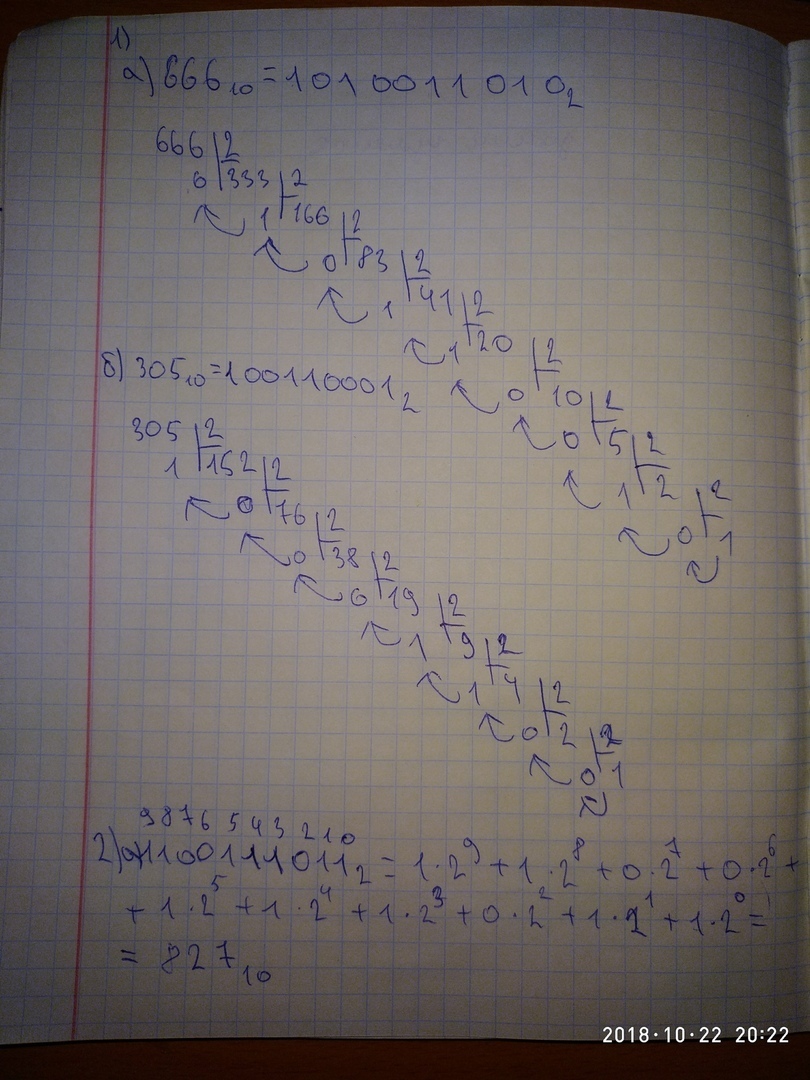 1)
а) 666₁₀ = 1010011010₂
666 | 2
0 | 333 | 2
1 | 166 | 2
0 | 83 | 2
1 | 41 | 2
1 | 20 | 2
0 | 10 | 2
0 | 5 | 2
1 | 2 | 2
0 | 1
б) 305₁₀ = 100110001₂
305 | 2
1 | 152 | 2
0 | 76 | 2
0 | 38 | 2
0 | 19 | 2
1 | 9 | 2
1 | 4 | 2
0 | 2 | 2
0 | 1
9 8 7 6 5 4 3 2 1 0
2) а) 1100111011₂ = 1·2⁹ + 1·2⁸ + 0·2⁷ + 0·2⁶ +
+ 1·2⁵ + 1·2⁴ + 1·2³ + 0·2² + 1·2¹ + 1·2⁰ =
= 827₁₀
2018·10·22 20:22